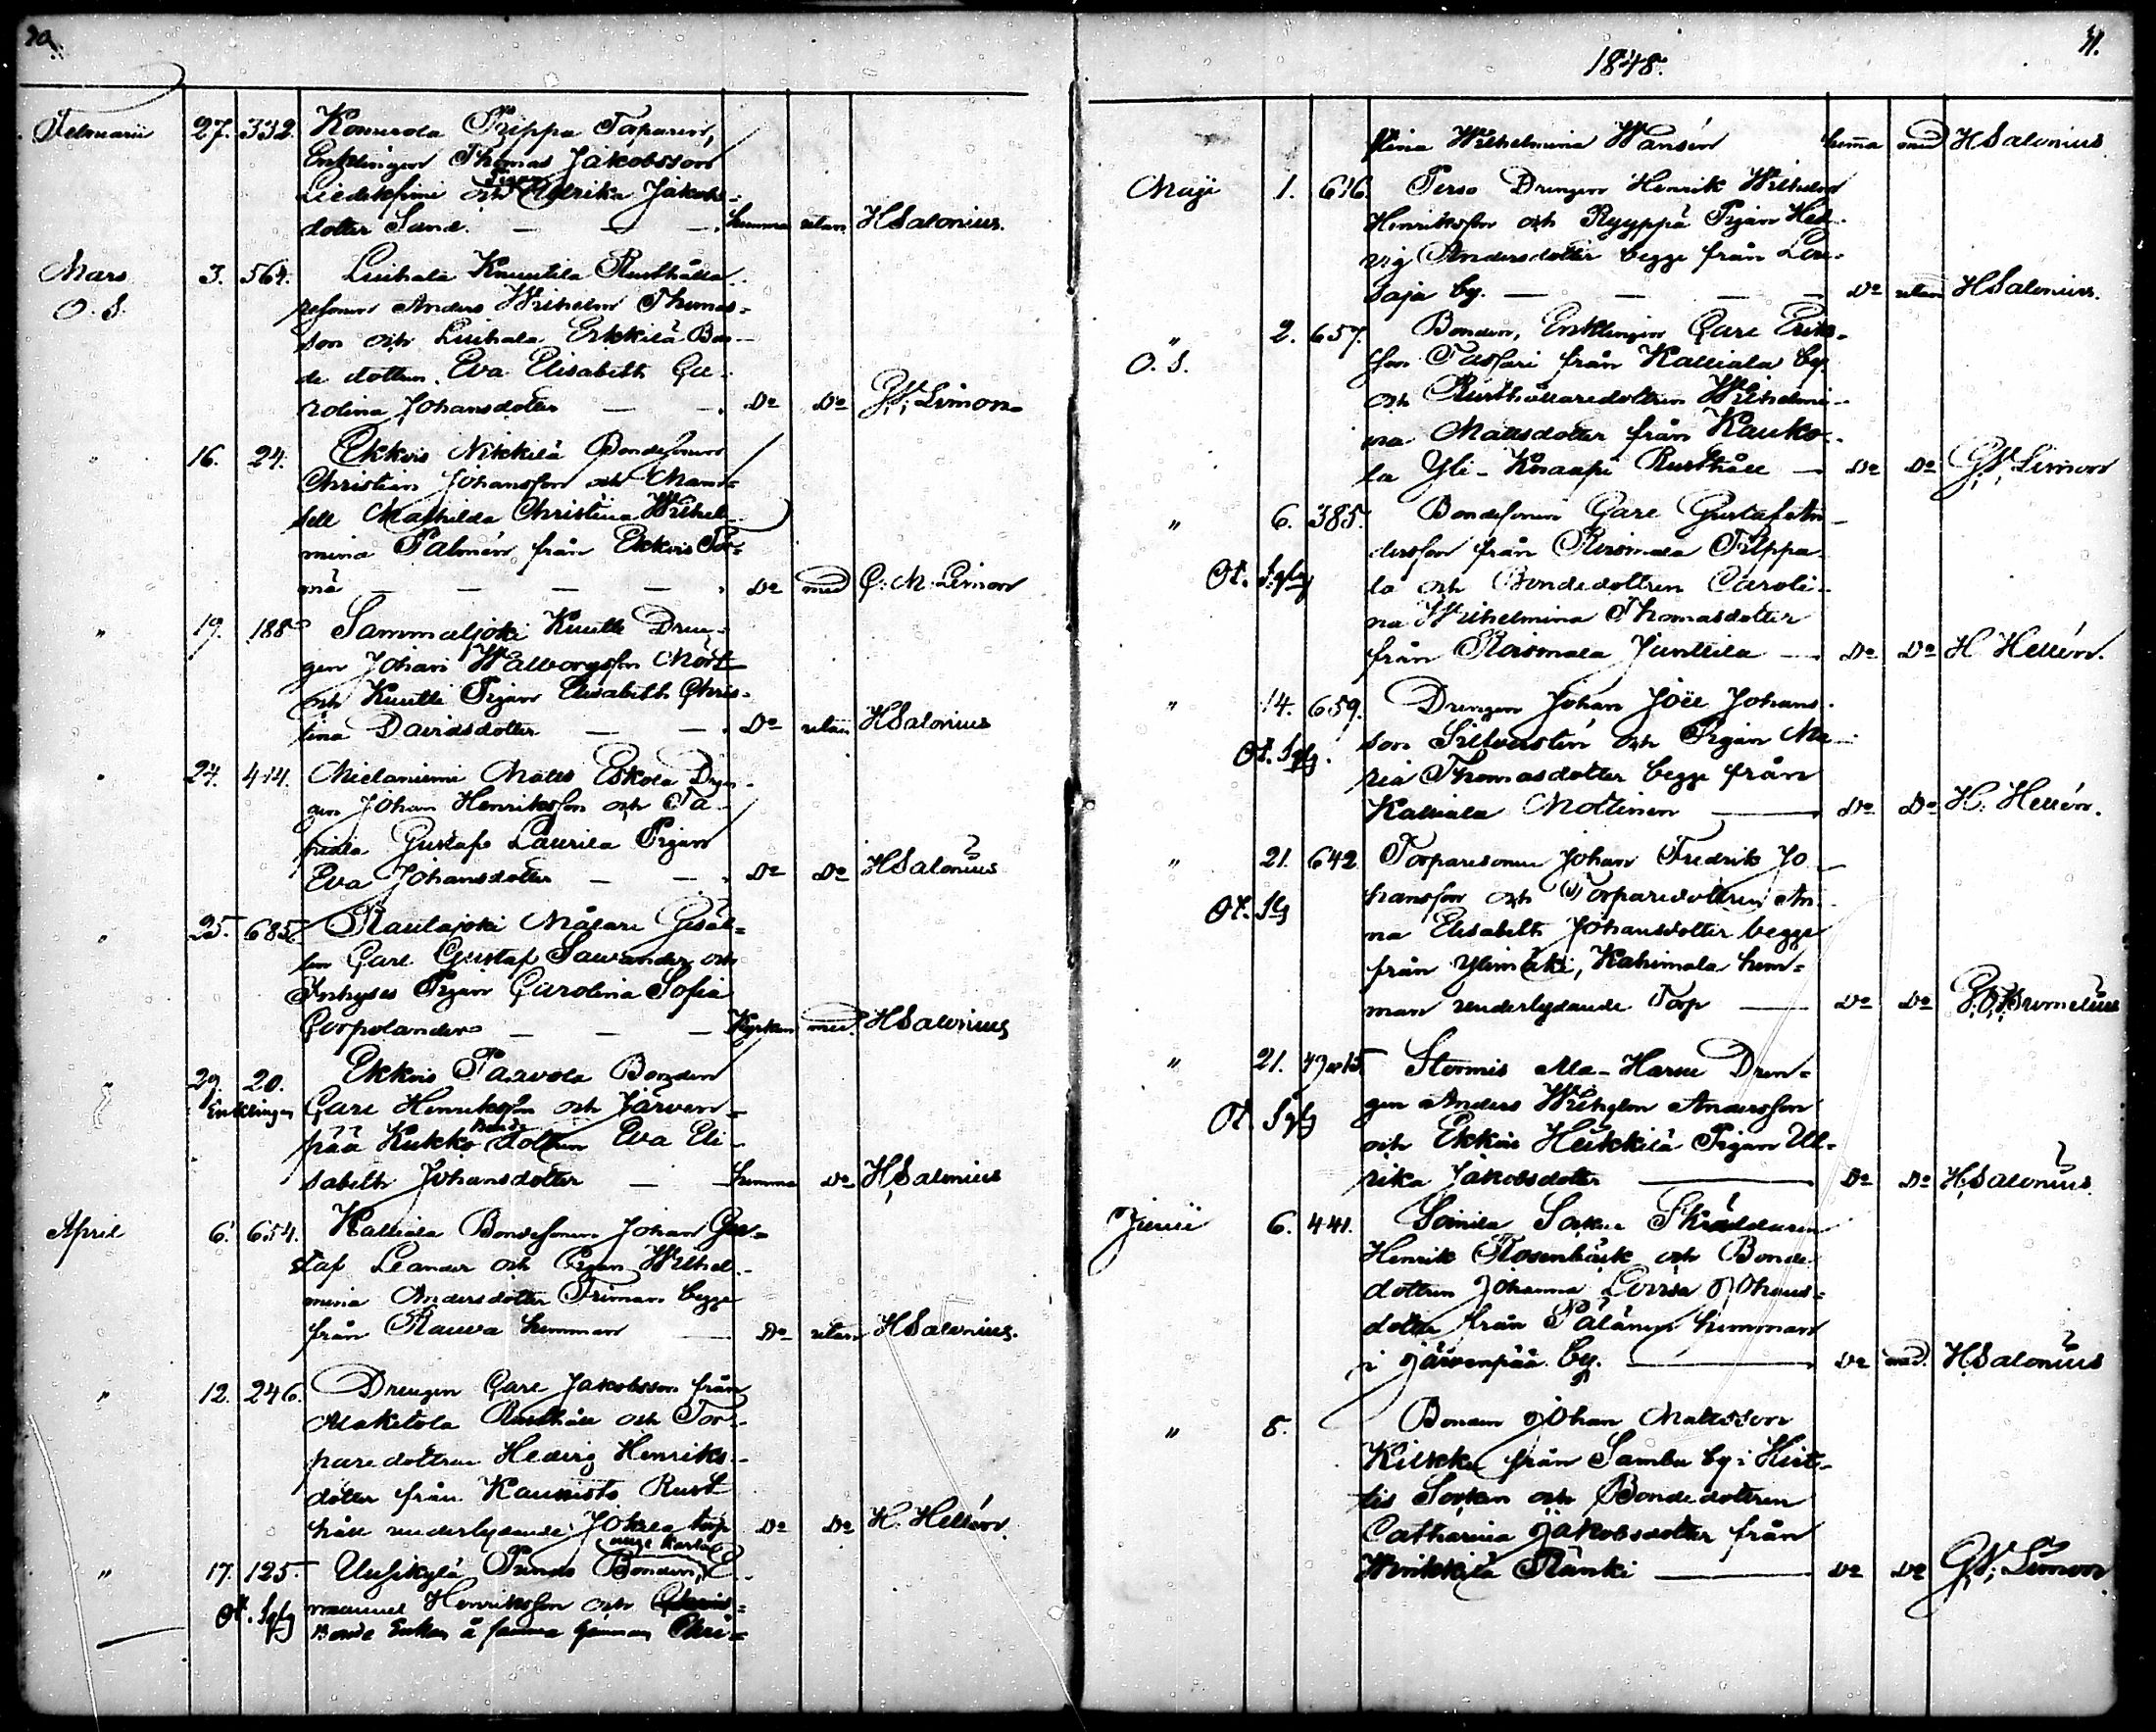 Februarii 27. 332. Komerola Prippa Torparen,
Enklingen Thomas Jakobsson
Liedekfimi och Pigan Ulrika Jakobs-
dotter Sand. — — hemma utan HSalonius.
Mars 3. 564. Liuhala Knuutila Rusthålla-
O. S. resonen Anders Wilhelm Thomas-
son och Liuhala Erkkilä Bon-
de dottren Eva Elisabeth Ca-
rolina Johansdotter — — Do Do G.W. Limon
" 16. 24. Ekkois Nikkilä Bondesonen
Christian Johansson och Mam-
sell Mathilda Christina Wilhel-
mina Palmén från Ekkois Tor-
mä — — — — Do med C. M. Limon
" 19. 188 Sammaljoki Knutti Dren-
gen Johan Walborgsson Mört
och Knutti Pigan Elisabeth Chris-
tina Davidsdotter — — Do utan HSalonius
" 24. 414. Mielaniemi Matts Eskola Dren-
gen Johan Henriksson och Ta-
Gustafs Laurila Pigan
Eva Johansdotter — — Do Do HSalonius
" 25. 685. Rautajoki Målare Gesäl-
len Carl Gustaf Sawander och
Inhyses Pigan Carolina Sofia
Corpolander — — Kyrkan med HSalonius
" 29. 20. Ekkois Paavola Bonden
Enklingen Carl Henriksson och Järven-
pää Kukko Bonde dottren Eva Eli-
sabeth Johansdotter — hemma Do HSalonius
April 6. 654. Kalliala Bondesonen Johan Gu-
staf Leander och Pigan Wilhel-
mina Andersdotter Friman begge
från Rauva hemman — Do utan HSalonius.
" 12. 246. Drengen Carl Jakobsson från
Alaketola Rusthåll och Tor-
paredottren Hedvig Henriks-
dotter från Kaunisto Rust
håll underlydande Jokela torp Do Do H. Hellén.
" 17. 125. Uusikylä Prinds Bonden, unge Karlen E-
Ot. Sgfg manuel Henriksson och
Bonde Enkan å samma hemman Chri-
1848.
stina Wilhelmina Wansén hemma med HSalonius
Maji 1. 616. Perso Drengen Henrik Wilhelm
Henriksson och Ryyppä Pigan Hed-
vig Andersdotter begge från Lou-
saja by. — — — Do utan HSalonius.
" 2. 657. Bonden, Enklingen Carl Eriks-
O. S. son Tuffari från Kalliala by
och Rusthållaredottren Wilhelmi-
na Mattsdotter från Kauko-
la Yli-Knaapi Rusthåll — Do Do G.W. Limon
" 6. 385. Bondesonen Carl Gustaf An-
dersson från Roismala Filppa-
Ot. Sgfg la och Bondedottren Caroli-
na Wilhelmina Thomasdotter
från Roismala Junttila — Do Do H Hellén.
" 14. 659. Drengen Johan Joël Johans-
Ot. Sgfg. son Silfversten och Pigan Ma-
ria Thomasdotter begge från
Kalliala Mottinen — Do Do H. Hellén.
" 21. 642 Torparesonen Johan Fredrik Jo-
Ot. Sfg hansson och Torparedottren An-
na Elisabeth Johansdotter begge
från Ylimäki, Kahimala hem-
man underlydande Torp — Do Do
" 21. Stormis Ala-Harvi Dren-
Ot. Sgfg gen Anders Wilhelm Andersson
och Ekkois Heikkilä Pigan Ul-
rika Jakobsdotter — Do Do HSalonius.
Junii 6. 441. Soinila Sorkee Skräddaren
Henrik Rosenbäck och Bonde-
dottren Johanna Lovisa Johans-
dotter från Pälänen hemman
i Järvenpää by. — Do med. HSalonius
" 8. Bonden Johan Mattsson
Kilkku från Sambu by i Huit-
tis Sockn och Bondedottren
Catharina Jakobsdotter från
Winkkilä Ränki — Do Do G.W. Limon